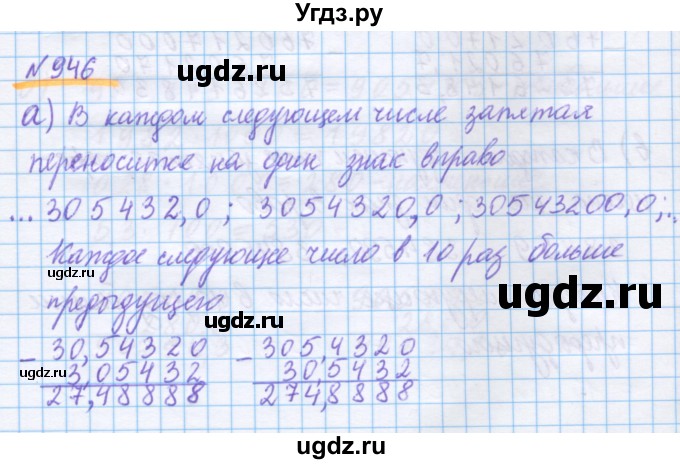 Угдз.ру
№946
ugdz.ru
а) В каждом следующем числе запятая
переносится на один знак вправо
ugdz.ru
... 305432,0; 3054320,0; 30543200,0;..
Каждое следующее число в 10 раз больше
ugdz.ru
ugdz.ru
предыдущего
ugdz.ru
- 30,54320 - 305,4320
ugdz.ru
3,05432 30,5432
27,48888 274,8888
ugdz.ru